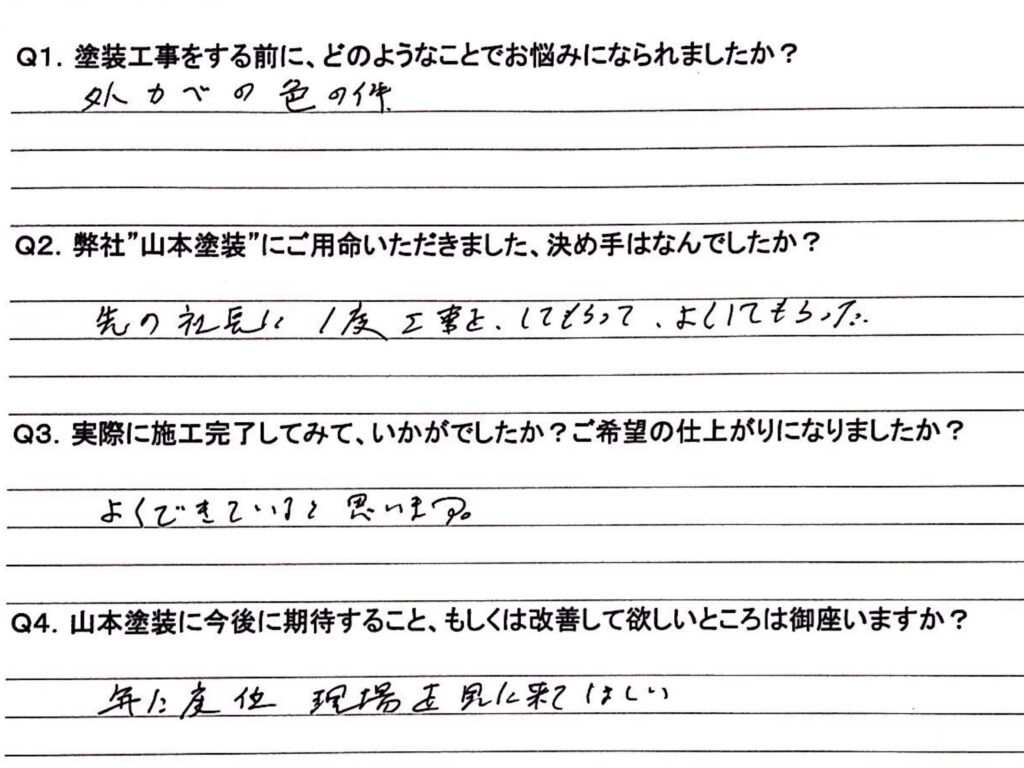 Q1. 塗装工事をする前に、どのようなことでお悩みになられましたか？
外カベの色の件
Q2. 弊社”山本塗装”にご用命いただきました、決め手はなんでしたか？
先の社長に1度工事を、してもらって、よくしてもらった.
Q3. 実際に施工完了してみて、いかがでしたか？ご希望の仕上がりになりましたか？
よくできていると思います。
Q4. 山本塗装に今後に期待すること、もしくは改善して欲しいところは御座いますか？
年に度位 現場を見に来てほしい